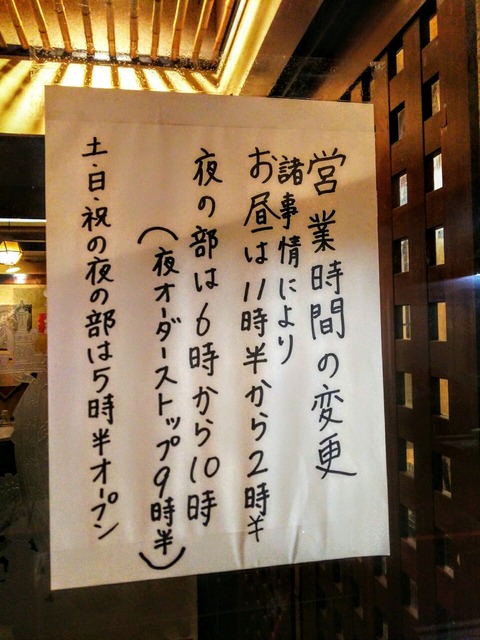 営業時間の変更
諸事情により
お昼は11時半から2時半
夜の部は6時から10時
(夜オーダーストップ9時半)
土・日・祝の夜の部は5時半オープン